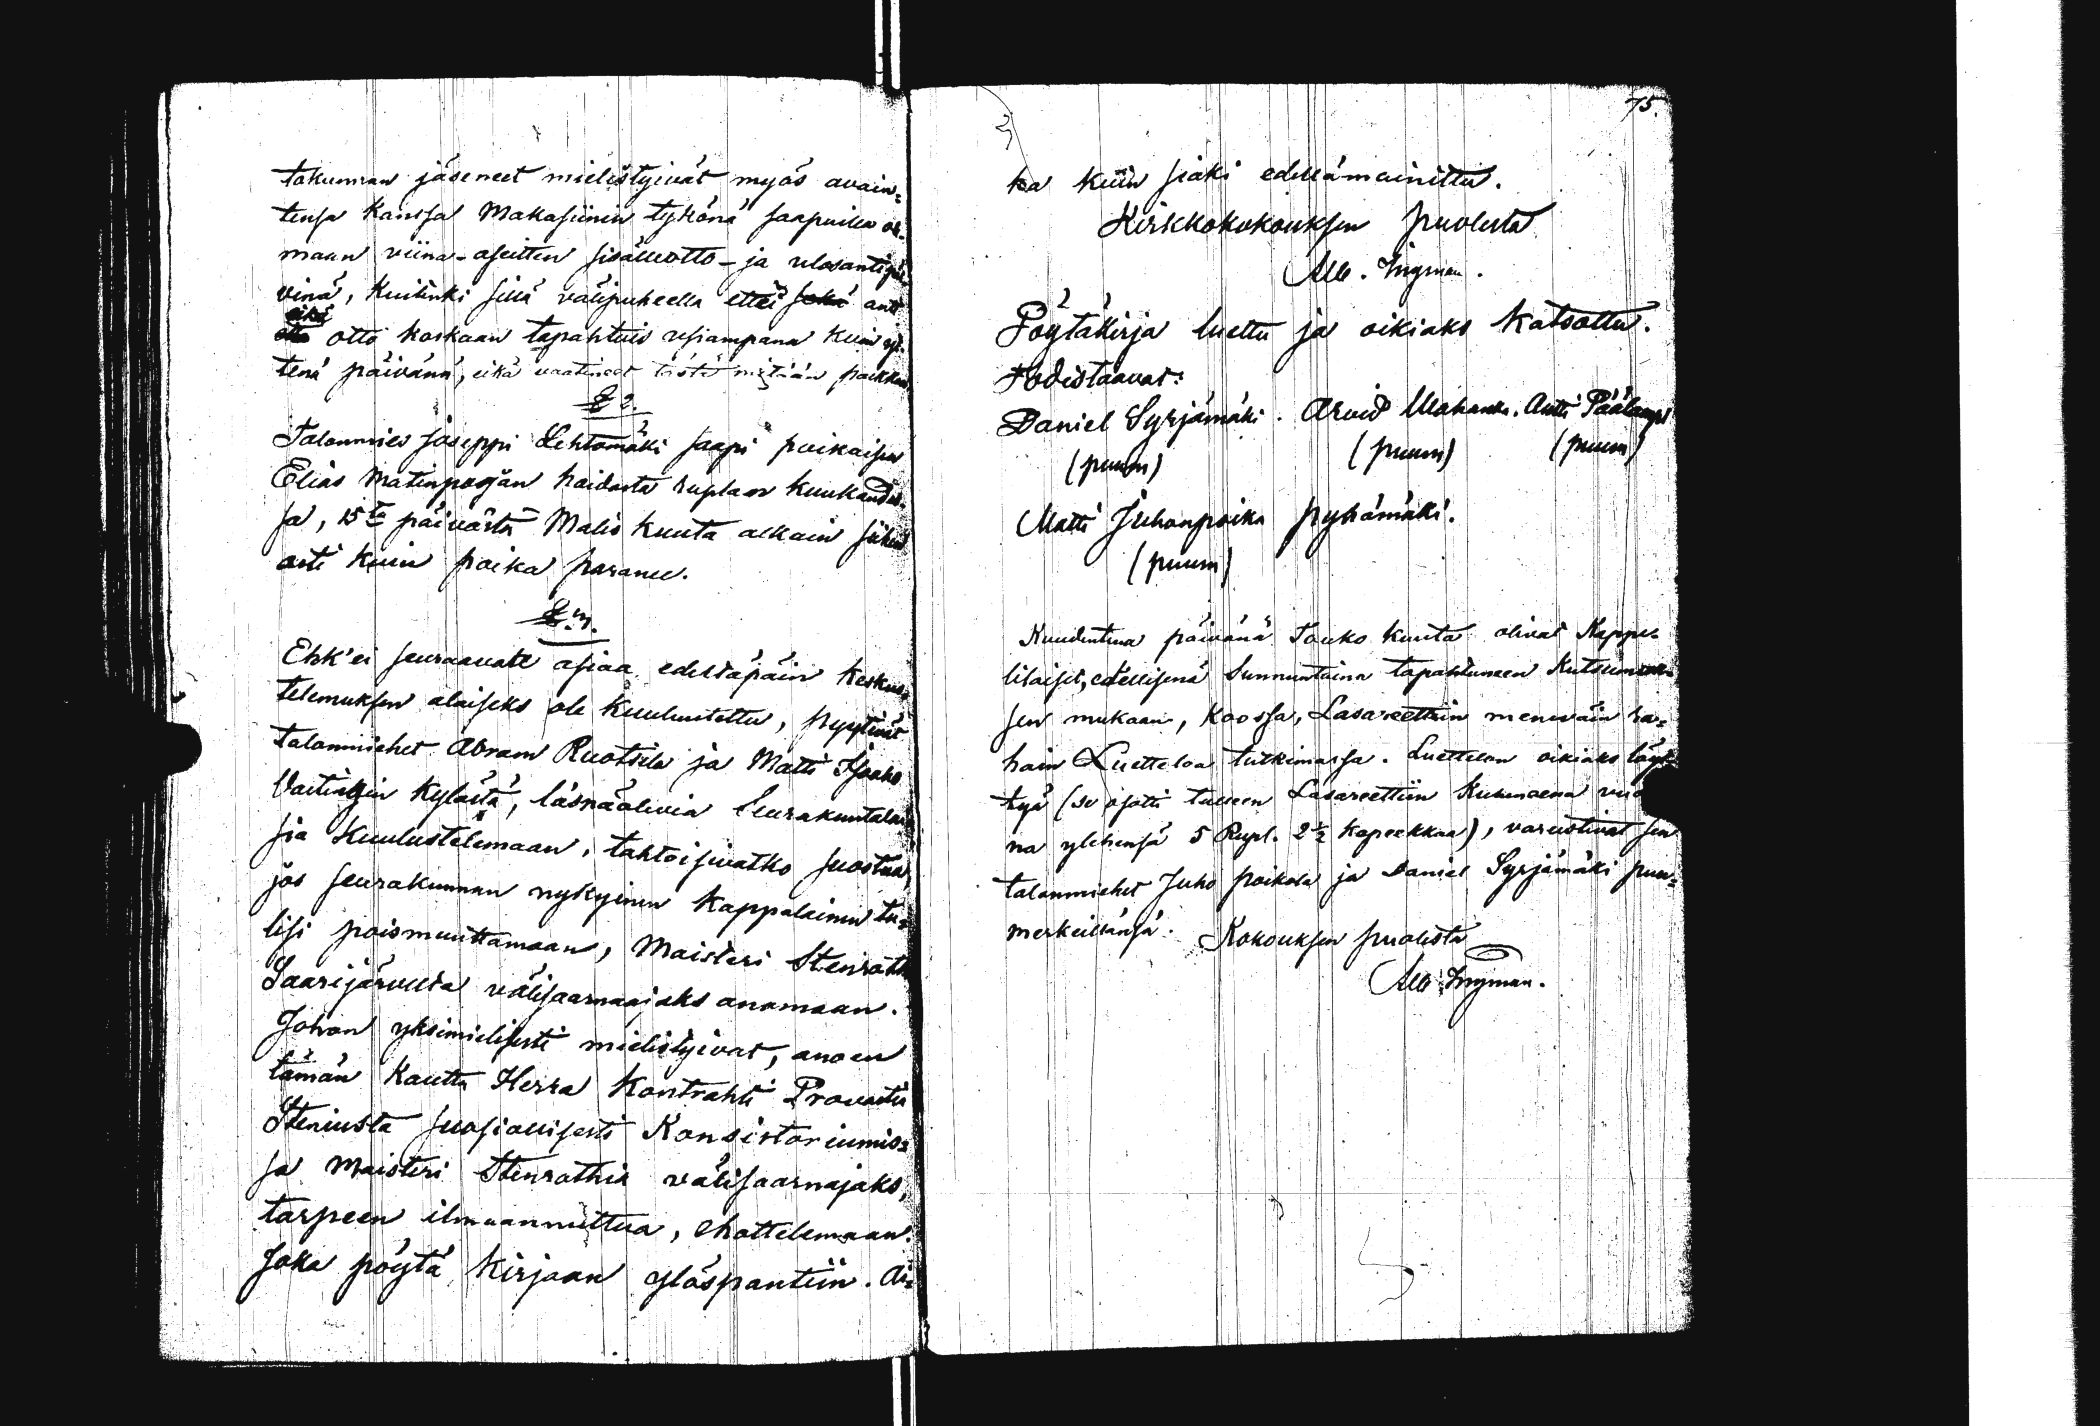 takunnan jäsenet mielistyivät myös avain=
tensa kanssa Makasiinin tykönä saapuilla ole
maan viina-aseitten sisäll'otto- ja ulosantipäi
vinä, kuitenki sillä välipuheella ettei anti
eikä otto koskaan tapahtuis usiampana kuin yh
tenä päivänä, eikä vaatineet tästä mitään palkkaa
§ 2.
Talonmies Joseppi Lehtomäki saapi poikaisen
Elias Matinpojan hoidosta ruplan kuukaudes=
sa, 15ta päivästä Malis kuuta alkain siihen
asti kuin poika paranee.
§. 3.
Ehk'ei seuraavate asiaa edeltäpäin keskus=
telemuksen alaiseks ole kuulutettu, pyytivät
talonmiehet Abram Ruotsila ja Matti
kylästä, läsnäolevia Seurakuntalai
sia kuulustelemaan, tahtoisivatko suostua,
jos seurakunnan nykyinen kappalainen tu=
lisi poismuuttamaan, Maisteri Stenroth
Saarijärveltä välisaarnaajaks anomaan.
Johon yksimielisesti mielistyivät, anoen
tämän kautta Herra Kontrahti Provasti
Steniusta suosiollisesti Konsistoriumis=
sa Maisteri Stenrothia välisaarnajaks,
tarpeen ilmaannuttua, ehottelemaan.
Joka pöytä kirjaan ylöspantiin. Ai=
75.
ka kuin paikki edellämainittu.
Kirkkokokouksen puolesta
Alb. Ingman.
Pöytäkirja luettu ja oikiaks katsottu.
todistaavat:
Daniel Syrjämäki. Arvid Antti
(puum) (puum) (puum)
Matti Juhonpoika Pyhämäki.
(puum)
Kuudentena päivänä Touko kuuta olivat Kappe=
lilaiset, edellisenä Sunnuntaina tapahtuneen kutsumuk=
sen mukaan, koossa, Lasareettiin meneväin ra=
hain Luetteloa tutkimassa. Luettelon oikiaks löyt
tyä (se osotti tulleen Lasareettiin kulunena vuo
na ylehensä 5 Rupl. 2½ kopeekkaa), varustivat sen
talonmiehet Juho Poikola ja Daniel Syrjämäki puu=
merkeillänsä. Kokouksen puolesta
Alb. Ingman.